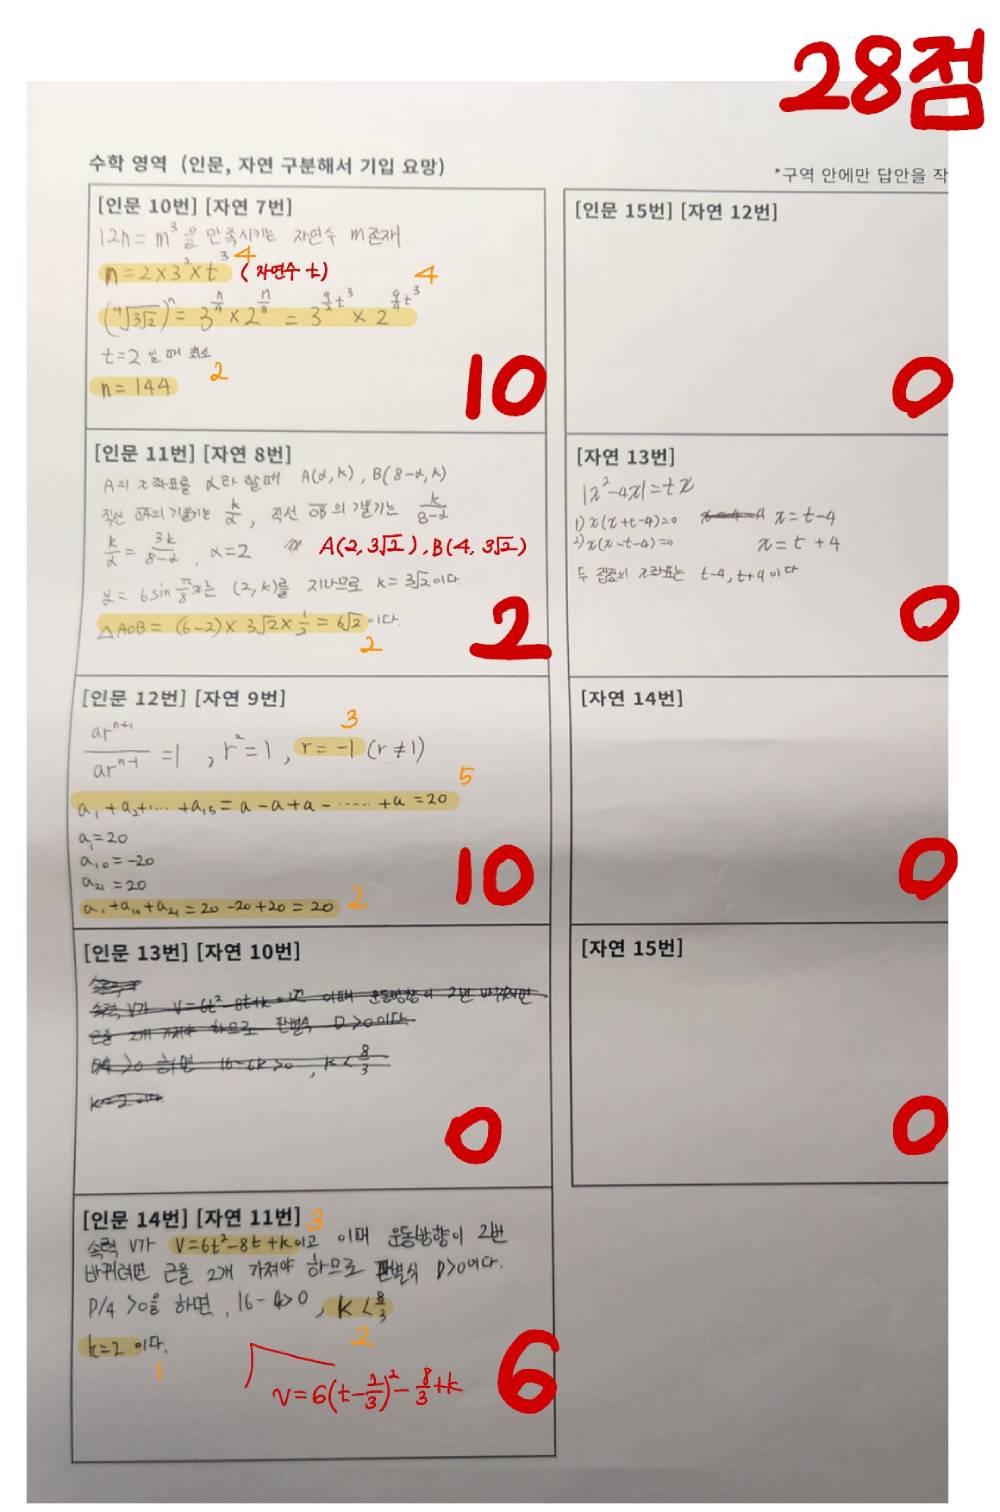 28점
수학 영역 (인문, 자연 구분해서 기입 요망)
*구역 안에만 답안을 작
[인문 10번] [자연 7번]
12n = m³을 만족시키는 자연수 m존재
n = 2×3²×t³ (자연수 t)
4
4
(⁴√3√2)ⁿ = 3^(n/4) × 2^(n/8) = 3^(9/2 t³) × 2^(9/4 t³)
t=2 일 때 최소
2
n = 144
10
[인문 11번] [자연 8번]
A의 x좌표를 α라 할때 A(α, k), B(8-α, k)
직선 OA의 기울기는 k/α, 직선 OB의 기울기는 k/8-α
k/α = 3k/8-α, α=2 A(2, 3√2), B(4, 3√2)
y = 6sin π/8 x는 (2, k)를 지나므로 k = 3√2이다.
△AOB = (6-2) × 3√2 × 1/2 = 6√2이다.
2
2
[인문 12번] [자연 9번]
3
arⁿ⁺¹/arⁿ⁻¹ = 1, r² = 1, r = -1 (r ≠ 1)
5
a₁ + a₂ + ... + a₁₅ = a - a + a - ...... + a = 20
a₁ = 20
a₁₀ = -20
a₂₁ = 20
a₁ + a₁₀ + a₂₁ = 20 - 20 + 20 = 20
2
10
[인문 13번] [자연 10번]
속력 v가 v = 6t²-8t+k이고 이때 운동방향이 2번 바뀌려면
근을 2개 가져야 하므로 판별식 D>0이다
D/4 >0 하면 16-6k>0, k < 8/3
k=2 이다
0
[인문 14번] [자연 11번]
3
속력 v가 v=6t²-8t+k이고 이때 운동방향이 2번
바뀌려면 근을 2개 가져야 하므로 판별식 D>0이다.
D/4 >0을 하면, 16-4>0, k < 8/3
2
k=2 이다.
1
v = 6(t-2/3)² - 8/3 + k
6
[인문 15번] [자연 12번]
0
[자연 13번]
|x²-4x| = tx
1) x(x+t-4)=0 x = t-4
2) x(x-t-4)=0 x = t+4
두 점의 x좌표는 t-4, t+4이다
0
[자연 14번]
0
[자연 15번]
0